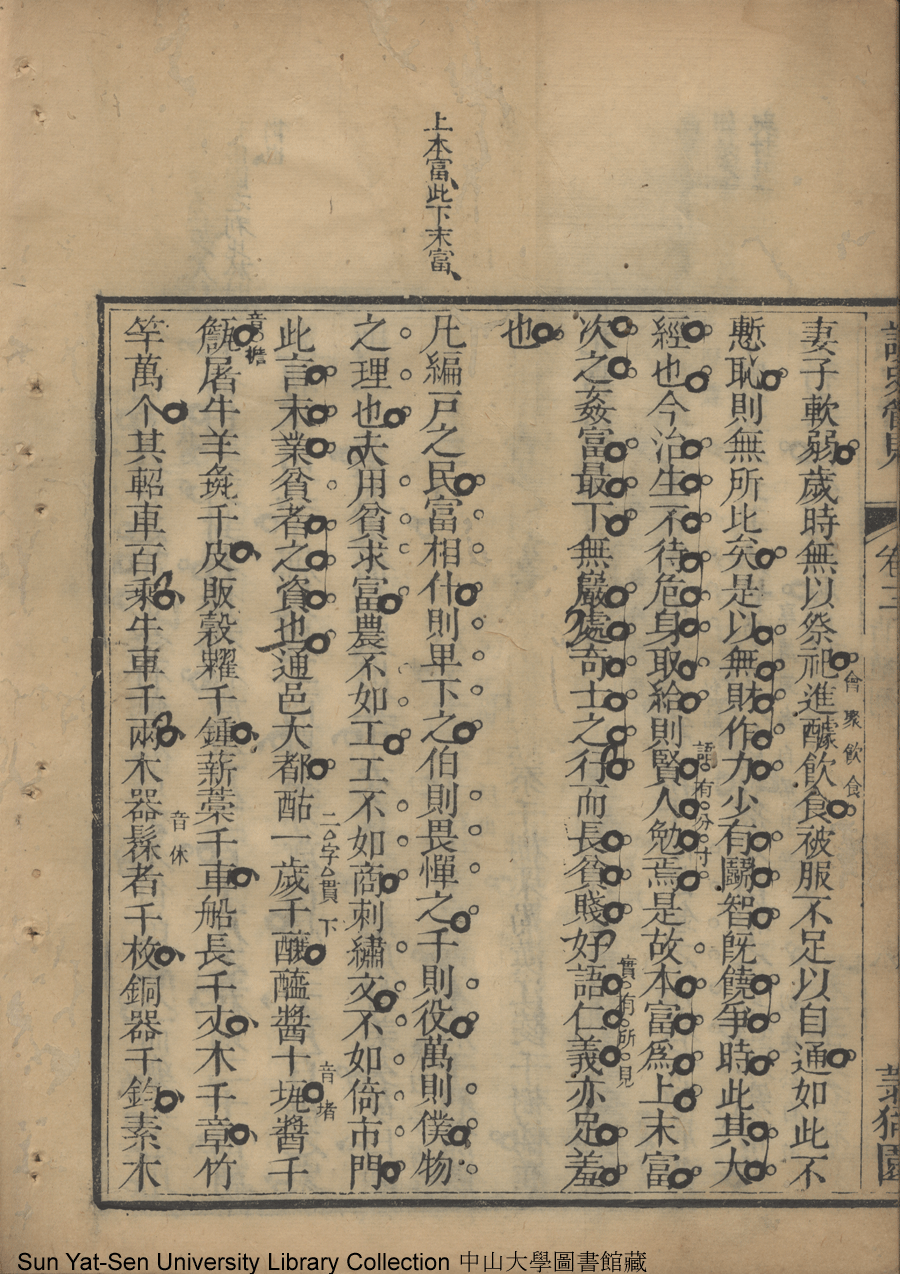 上本富、此下末富、
卷三
妻子軟弱歲時無以祭祀進醵飲食被服不足以自通如此不
會聚飲食
慙恥則無所比矣是以無財作力少有鬭智旣饒爭時此其大
經也今治生不待危身取給則賢人勉焉是故本富爲上末富
語有分寸
次之姦富最下無巖處奇士之行而長貧賤好語仁義亦足羞
實有所見
也
凡編戸之民富相什則卑下之伯則畏憚之千則役萬則僕物
之理也夫用貧求富農不如工工不如商刺繡文不如倚市門
此言末業貧者之資也通邑大都酤一歲千釀醯醬十瓨醬千
二字貫下
音堵
甔屠牛羊彘千皮販穀糶千鍾薪藁千車船長千丈木千章竹
音檐
竿萬个其軺車百乘牛車千兩木器髹者千枚銅器千鈞素木
音休
Sun Yat-Sen University Library Collection 中山大學圖書館藏